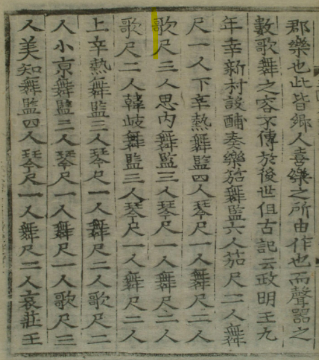 郡樂也此皆鄕人喜樂之所由作也而聲器之
數歌舞之容不傳於後世但古記云政明王九
年幸新村設酺奏樂笳舞監六人笳尺二人舞
尺一人下辛熱舞監四人琴尺一人舞尺二人
歌尺三人思內舞監三人琴尺一人舞尺二人
歌尺二人韓岐舞監三人琴尺一人舞尺二人
上辛熱舞監三人琴尺一人舞尺二人歌尺二
人小京舞監三人琴尺一人舞尺一人歌尺三
人美知舞監四人琴尺一人舞尺二人哀莊王